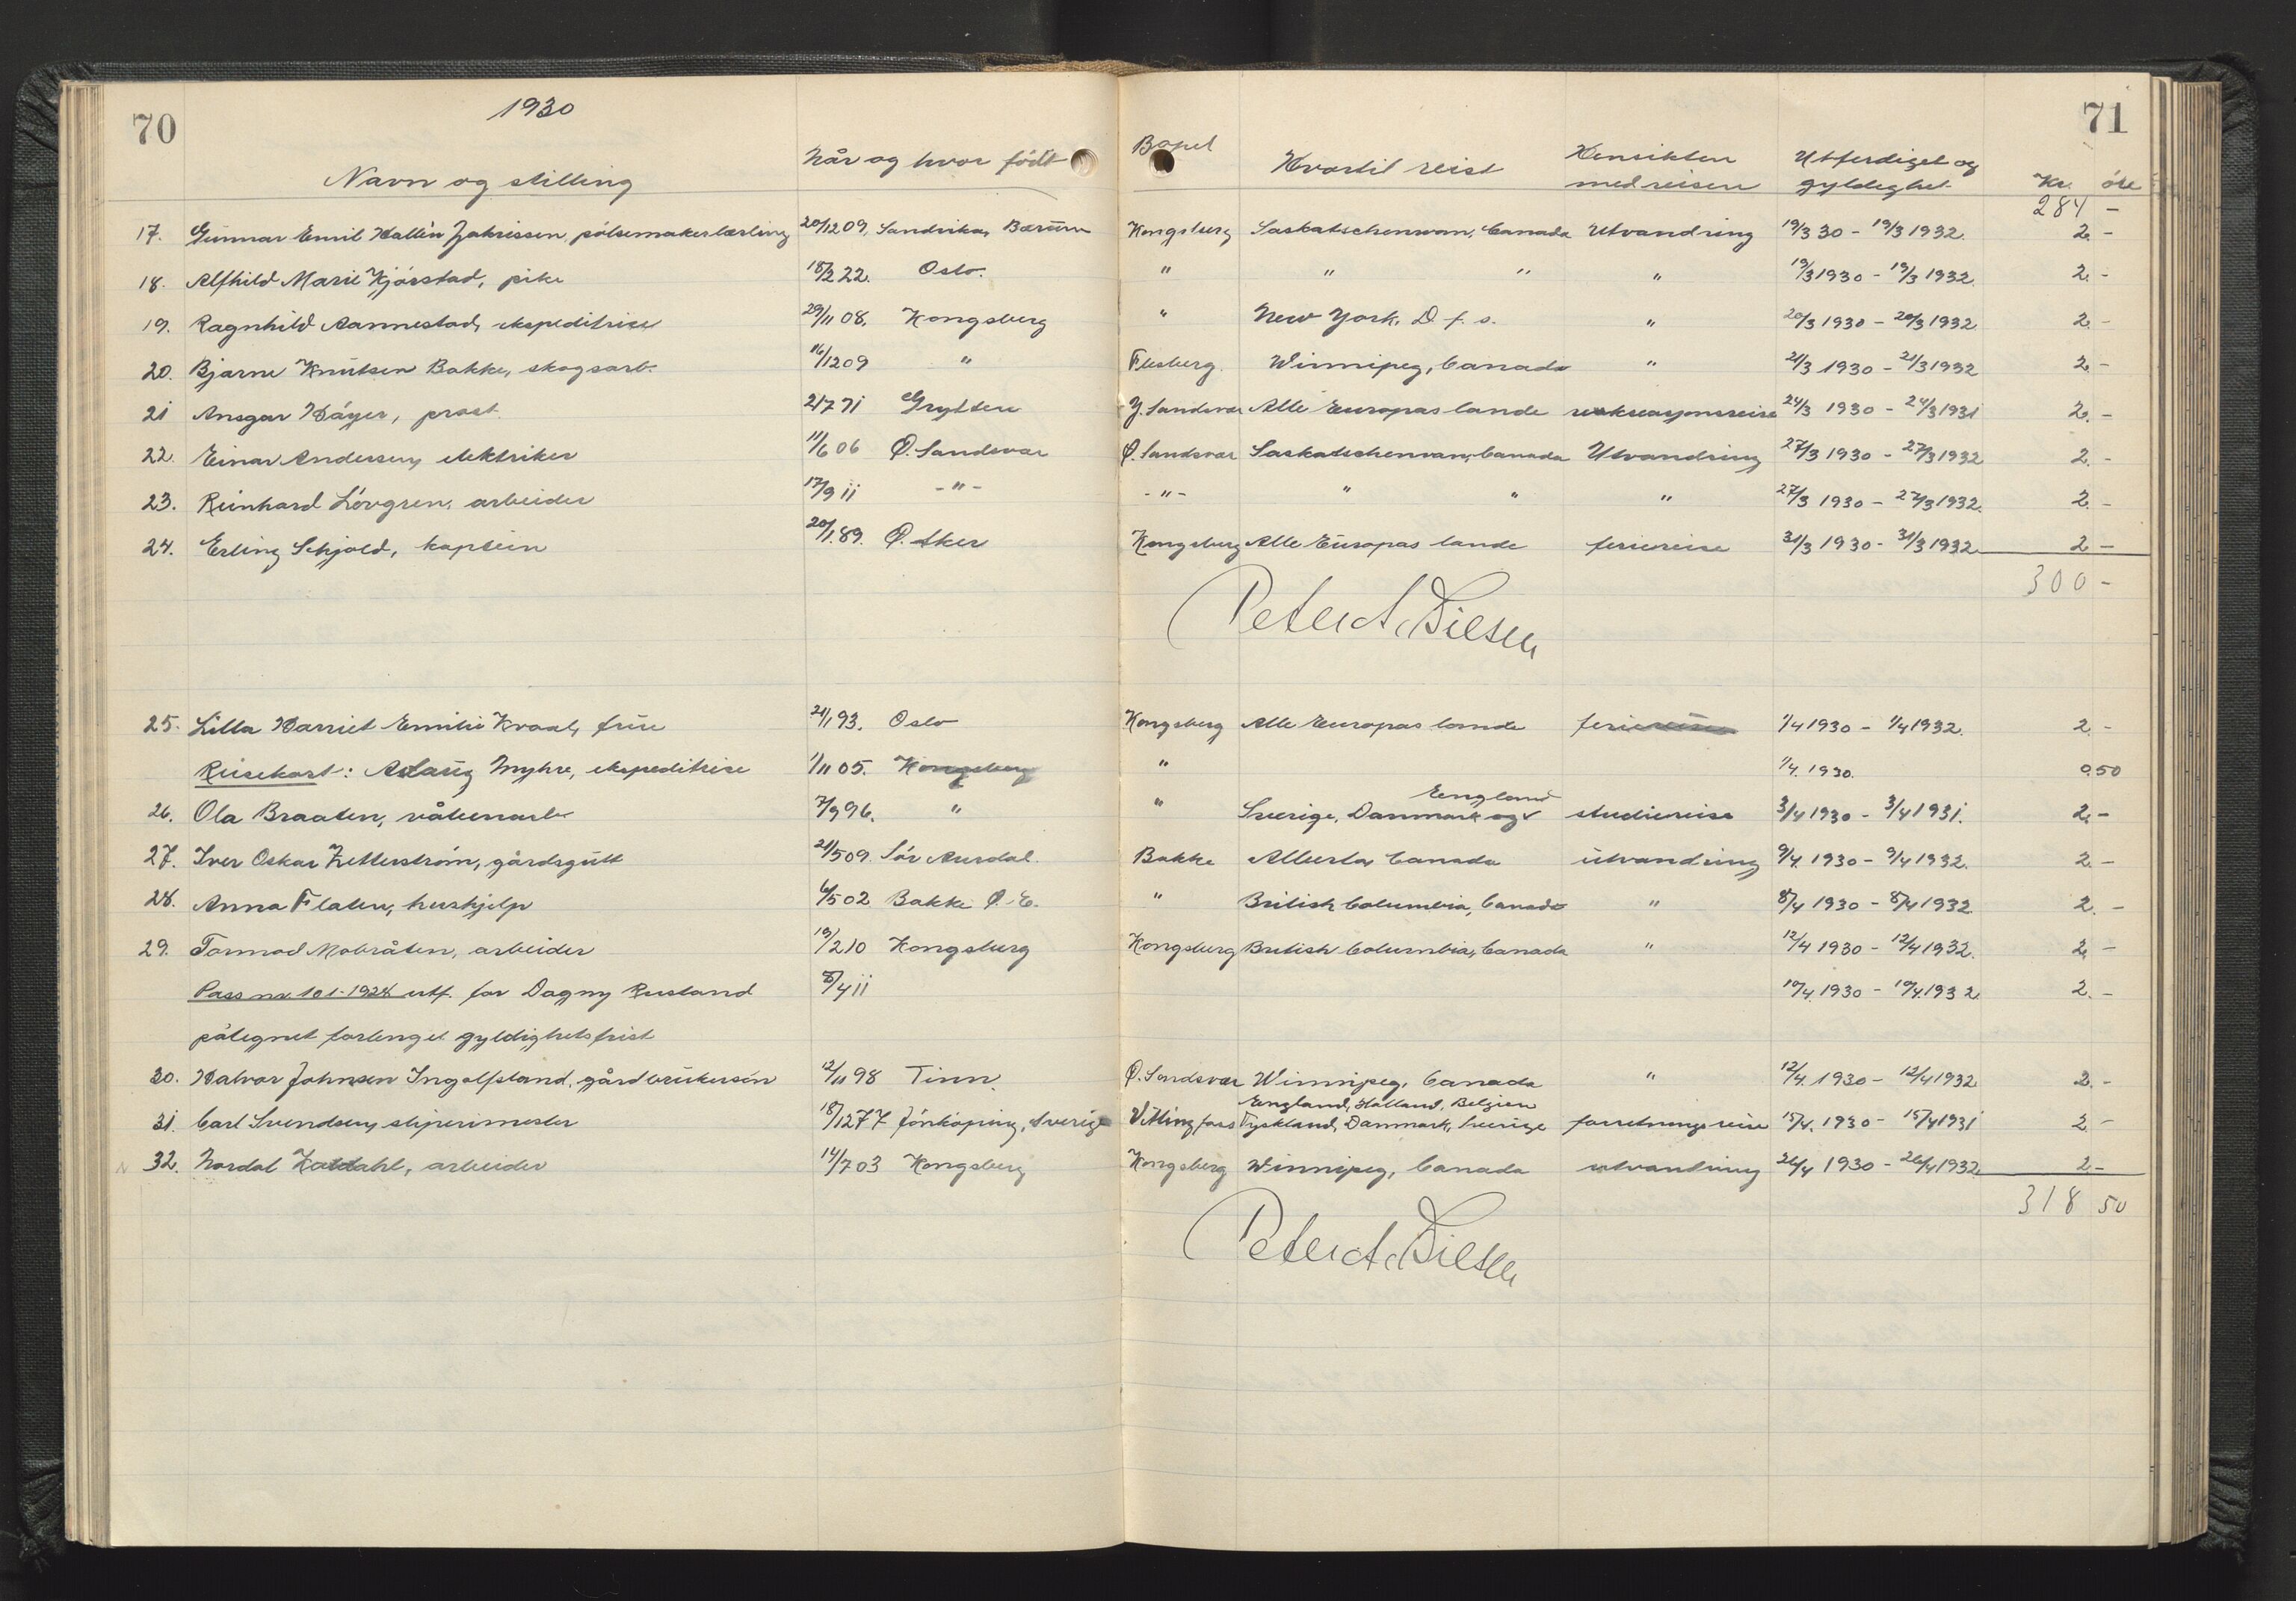 70
1930
71
Navn og stilling Når og hvor født Bopel Hvortil reist Hensikten med reisen Utferdiget og gyldighet Kr. öre
284 -
17. Gunnar Emil Hallin Zakrissen, pölsemakerlærling 20/12 09, Sandvika, Bærum Kongsberg Saskatschenvan, Canada Utvandring 19/3 30 - 19/3 1932. 2. -
18. Alfhild Marie Kjörstad, pike 18/2 22. Oslo. " " " " 19/3 1930 - 19/3 1932. 2. -
19. Ragnhild Aannestad, ekspeditrise 29/11 08, Kongsberg " New York, D. f. s. " 20/3 1930 - 20/3 1932 2. -
20. Bjarne Knutsen Bakke, skogsarb. 16/12 09 " Flesberg. Winnipeg, Canada " 21/3 1930 - 21/3 1932 2. -
21 Ansgar Höyer, prost. 21/7 71 Grytten Y. Sandsvær Alle Europas lande rekreasjonsreise 24/3 1930 - 24/3 1931 2. -
22. Einar Andersen, elektriker 11/6 06 Ø. Sandsvær Ø. Sandsvær Saskatschenvan, Canada Utvandring 27/3 1930 - 27/3 1932 2. -
23. Reinhard Lövgren, arbeider 17/9 11 - " - - " - " " " 27/3 1930 - 27/3 1932. 2. -
24. Erling Schjold, kaptein 20/1 89. Ø. Aker Kongsberg Alle Europas lande feriereise 31/3 1930 - 31/3 1932 2 -
300 -
25. Lilla Harriet Emilie Kvaal, frue 21/1 93. Oslo Kongsberg Alle Europas lande feriereise 1/4 1930 - 1/4 1932. 2. -
Reisekort: Aslaug Myhre, ekspeditrise 1/11 05. Kongsberg " 1/4. 1930. 0.50
26. Ola Braaten, våbenarb. 7/9 96. " " Sverige, Danmark og England studiereise 3/4 1930 - 3/4 1931. 2. -
27. Iver Oskar Zetterström, gårdsgutt 21/5 09. Sör Aurdal. Bakke Alberta, Canada utvandring 9/4. 1930 - 9/4 1932. 2. -
28. Anna Flaten, hushjelp 6/5 02 Bakke Ø. E. " British Columbia, Canada " 8/4 1930 - 8/4 1932 2. -
29. Tormod Mobråten, arbeider 19/2 10 Kongsberg Kongsberg British Columbia, Canada " 12/4 1930 - 12/4 1932. 2. -
Pass nr. 101-1928 utf. for Dagny Rustand 8/4 11 10/4. 1930 - 10/4. 1932. 2. -
påtegnet forlenget gyldighetsfrist
30. Halvor Johnsen Ingolfsland, gårdbrukersön 12/11 98 Tinn. Ø. Sandsvær Winnipeg, Canada " 12/4. 1930 - 12/4 1932 2. -
31. Carl Svendsen, sliperimester 18/12 77 Jönköping, Sverige Vittingfoss England, Holland, Belgien Tyskland, Danmark, Sverige forretningsreise 15/4. 1930 - 15/4 1931 2 -
32. Nordal Kaldahl, arbeider 14/7 03 Kongsberg Kongsberg Winnipeg, Canada utvandring 26/4 1930 - 26/4 1932. 2 -
318 50